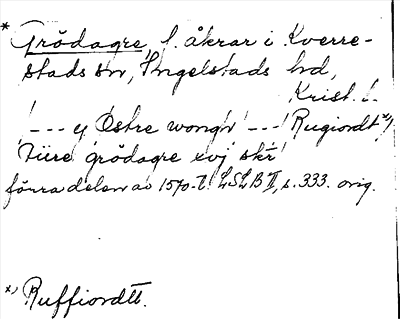 * Grödagre, f. åkrar i Kverre-
stads sn, Ingelstads hd,
Krist. l.
"--- y Østre wongh --- Rugiordt x)
Tiire grödagre xvj skr"
förra delen av 1570-t. LSLB II, s. 333. orig.
x) Ruffiordtt.